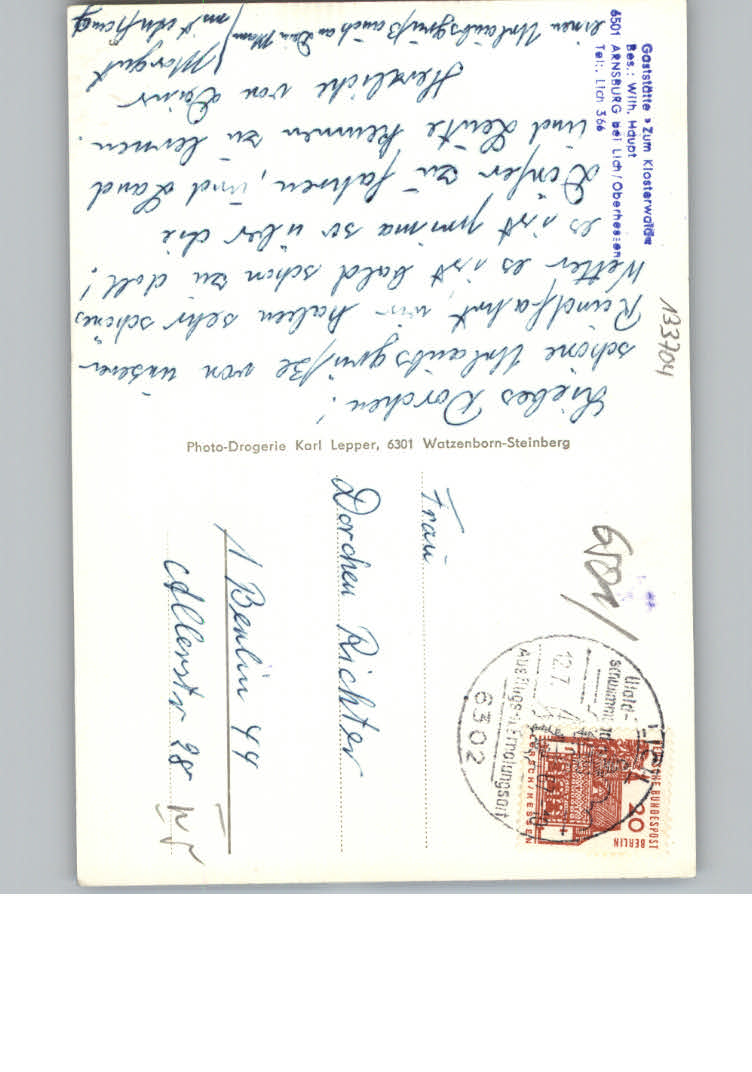 Gaststätte »Zum Klosterwald«
Bes.: Wilh. Haupt
6501 ARNSBURG bei Lich/Oberhessen
Tel.: Lich 366
133704
Liebes Dorchen!
schöne Urlaubsgrüße von unserer
Rundfahrt, wir haben sehr schönes
Wetter es ist bald schon zu doll!
es ist prima so über die
Dörfer zu fahren, und Land
und Leute kennen zu lernen.
Herzliche von Deiner
Margut
einen Urlaubsgruß auch an Dein Mann
mit
Photo-Drogerie Karl Lepper, 6301 Watzenborn-Steinberg
Frau
Dorchen Richter
1 Berlin 44
Allerstr 28
6302
LICH
Wald-
schwimmbad
12.7.
Ausflugs-u. Erholungsort
DEUTSCHE BUNDESPOST
BERLIN
20
LORSCH/HESSEN